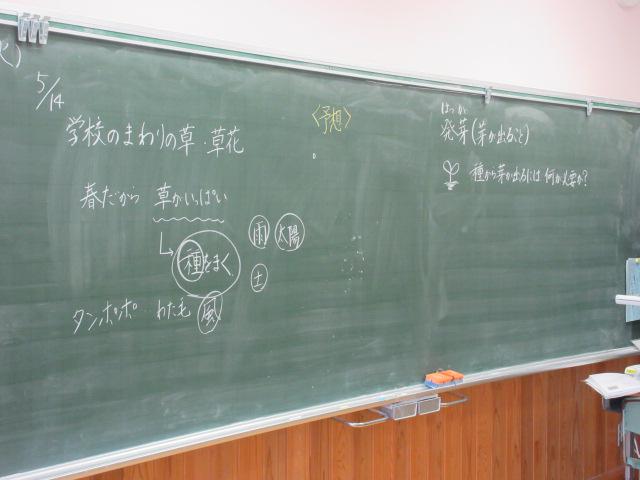 火)
5/14
学校のまわりの草・草花
春だから 草がいっぱい
種をまく
雨 太陽
土
タンポポ わた毛 風
〈予想〉
はつが
発芽(芽が出ること)
種から芽が出るには何が必要か?